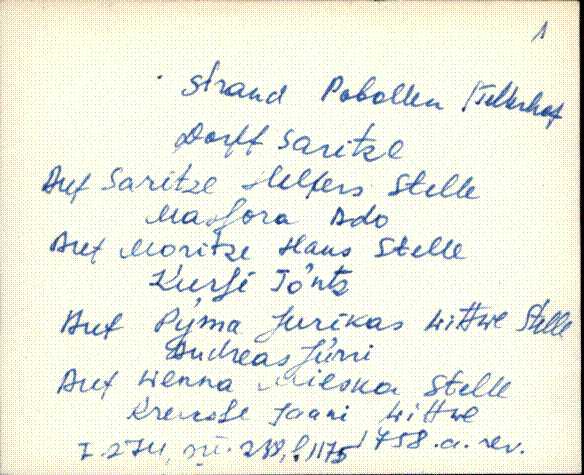 1
Strand Pobollen Filkenhof
Dorff Saritze
Auf Saritze Helfers Stelle
Matzora Ado
Auf Moritze Hans Stelle
Kursi Tönts
Auf Pyma Jurikas Wittwe Stelle
Andreas Jürri
Auf Wenna Mieska Stelle
Kreutse Jaani Wittwe
1758.a. rev.